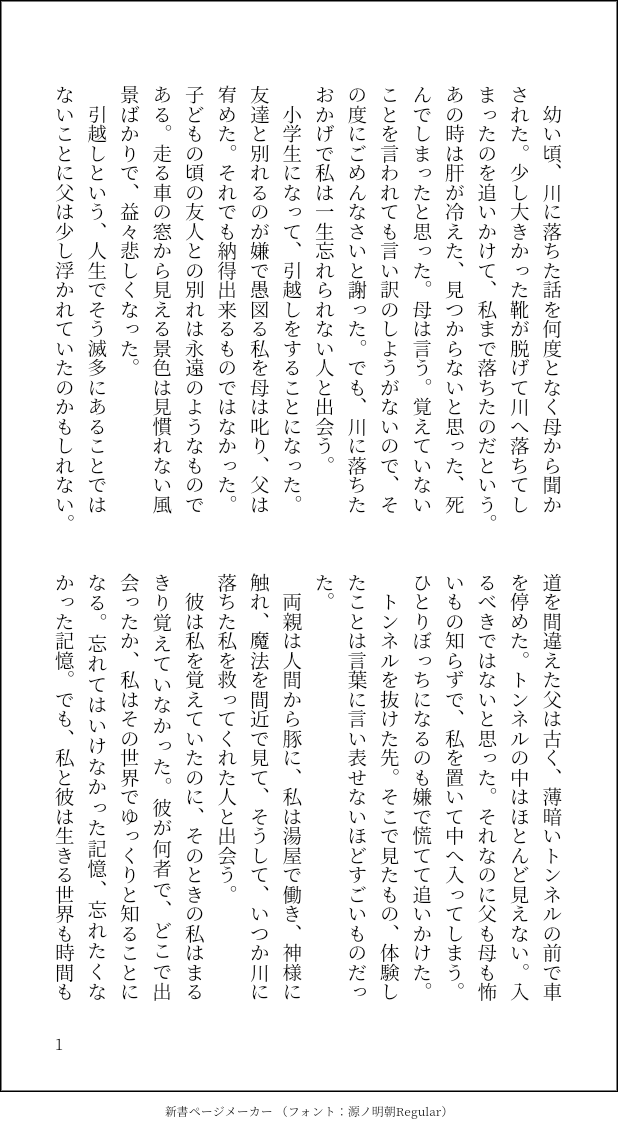 幼い頃、川に落ちた話を何度となく母から聞か
された。少し大きかった靴が脱げて川へ落ちてし
まったのを追いかけて、私まで落ちたのだという。
あの時は肝が冷えた、見つからないと思った、死
んでしまったと思った。母は言う。覚えていない
ことを言われても言い訳のしようがないので、そ
の度にごめんなさいと謝った。でも、川に落ちた
おかげで私は一生忘れられない人と出会う。
小学生になって、引越しをすることになった。
友達と別れるのが嫌で愚図る私を母は叱り、父は
宥めた。それでも納得出来るものではなかった。
子どもの頃の友人との別れは永遠のようなもので
ある。走る車の窓から見える景色は見慣れない風
景ばかりで、益々悲しくなった。
引越しという、人生でそう滅多にあることでは
ないことに父は少し浮かれていたのかもしれない。
道を間違えた父は古く、薄暗いトンネルの前で車
を停めた。トンネルの中はほとんど見えない。入
るべきではないと思った。それなのに父も母も怖
いもの知らずで、私を置いて中へ入ってしまう。
ひとりぼっちになるのも嫌で慌てて追いかけた。
トンネルを抜けた先。そこで見たもの、体験し
たことは言葉に言い表せないほどすごいものだっ
た。
両親は人間から豚に、私は湯屋で働き、神様に
触れ、魔法を間近で見て、そうして、いつか川に
落ちた私を救ってくれた人と出会う。
彼は私を覚えていたのに、そのときの私はまる
きり覚えていなかった。彼が何者で、どこで出
会ったか、私はその世界でゆっくりと知ることに
なる。忘れてはいけなかった記憶、忘れたくな
かった記憶。でも、私と彼は生きる世界も時間も
1
新書ページメーカー（フォント：源ノ明朝Regular）